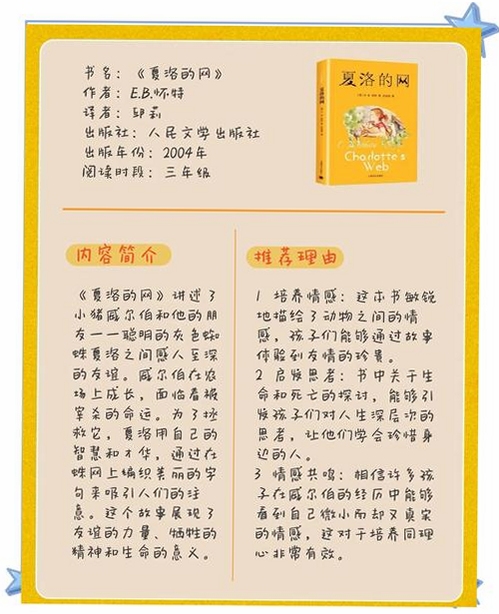 书名：《夏洛的网》
作者：E.B.怀特
译者：邱莉
出版社：人民文学出版社
出版年份：2004年
阅读时段：三年级
夏洛的网
Charlotte's
Web
内容简介
《夏洛的网》讲述了
小猪威尔伯和他的朋
友——聪明的灰色蜘
蛛夏洛之间感人至深
的友谊。威尔伯在农
场上成长，面临着被
宰杀的命运。为了拯
救它，夏洛用自己的
智慧和才华，通过在
蛛网上编织美丽的字
句来吸引人们的注
意。这个故事展现了
友谊的力量、牺牲的
精神和生命的意义。
推荐理由
1 培养情感：这本书敏锐
地描绘了动物之间的情
感，孩子们能够通过故事
体验到友情的珍贵。
2 启发思考：书中关于生
命和死亡的探讨，能够引
发孩子们对人生深层次的
思考，让他们学会珍惜身
边的人。
3 情感共鸣：相信许多孩
子在威尔伯的经历中能够
看到自己微小而却又真实
的情感，这对于培养同理
心非常有效。